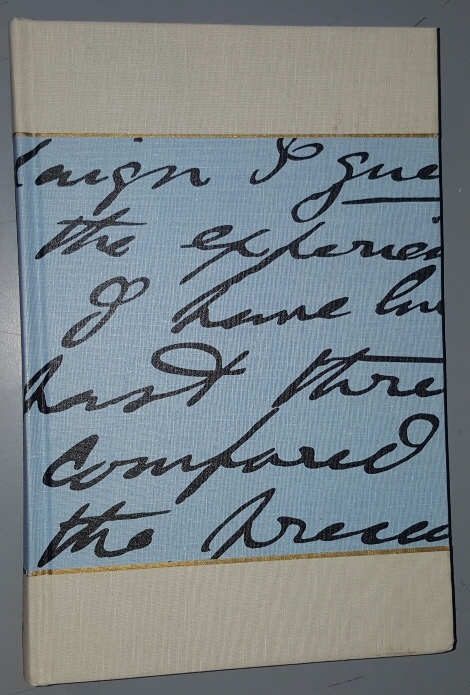 aign I gue
the experien
I have liv
past thre
compared
the prece